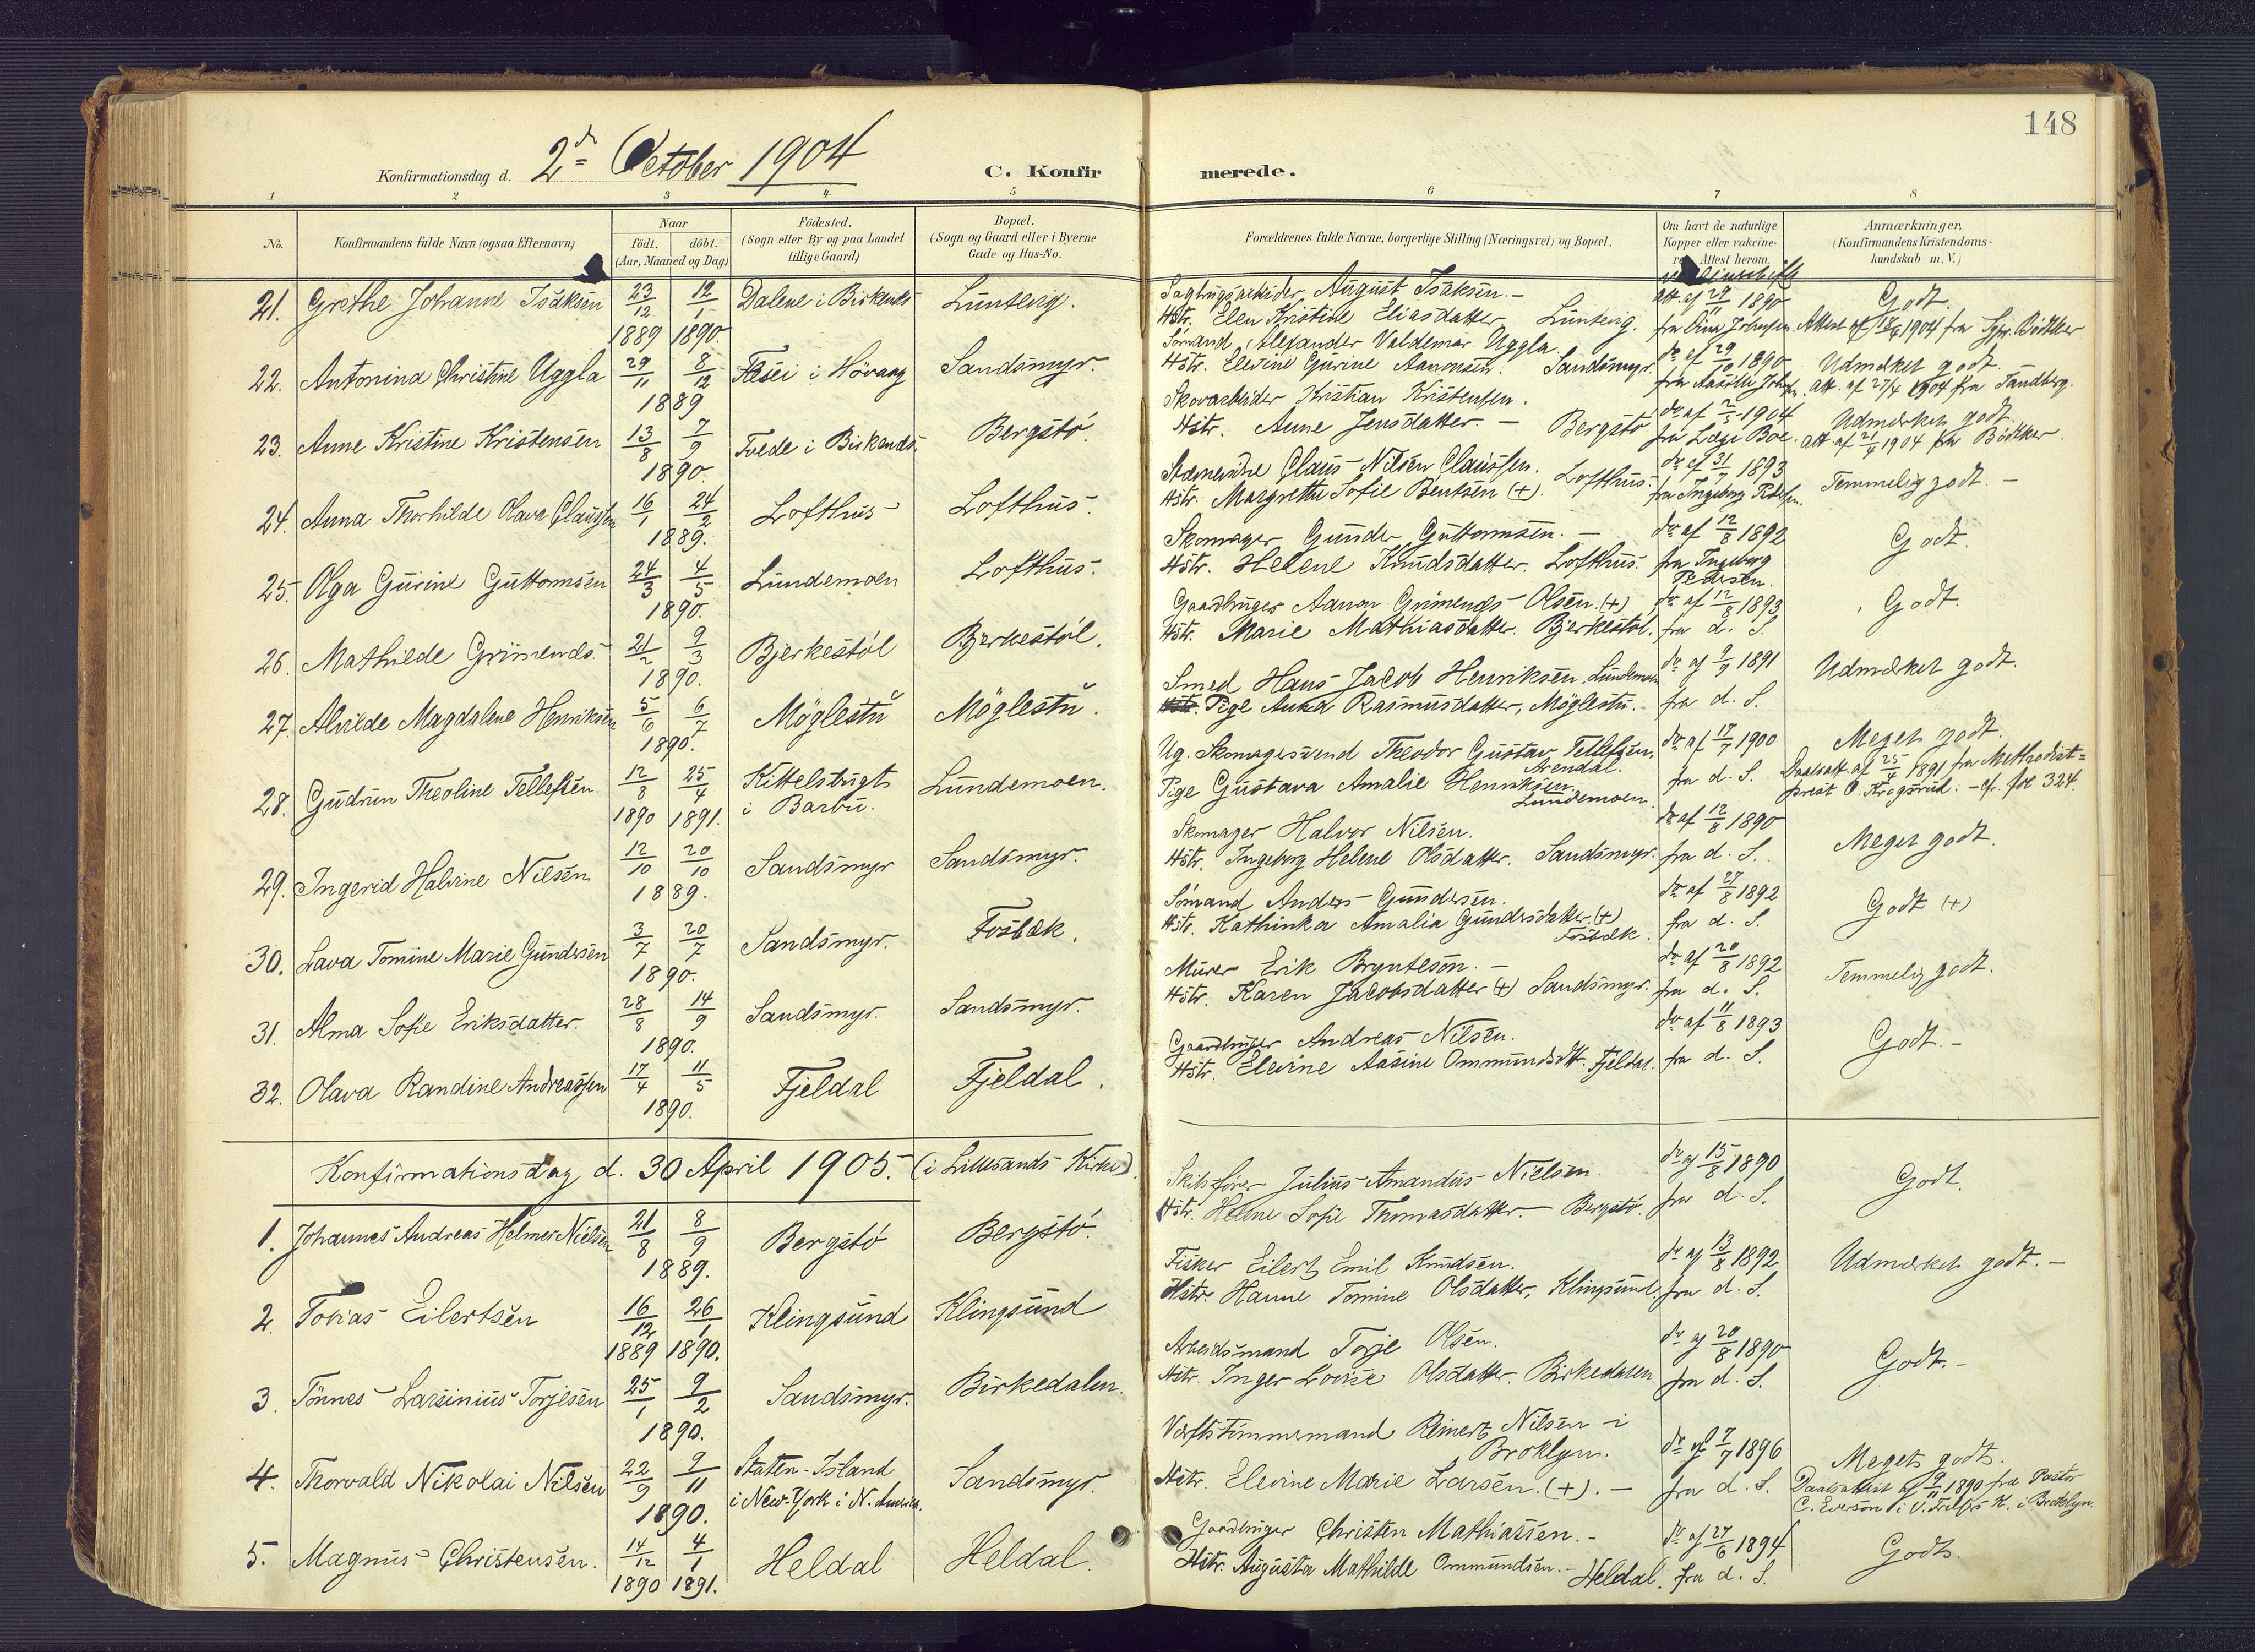 148
Konfirmationsdag d. 2den October 1904
C. Konfirmerede.
1 2 3 4 5 6 7 8
No.
Konfirmandens fulde Navn (ogsaa Efternavn)
Naar
födt. döbt.
(Aar, Maaned og Dag)
Födested.
(Sogn eller By og paa Landet
tillige Gaard)
Bopæl.
(Sogn og Gaard eller i Byerne
Gade og Hus-No.
Forældrenes fulde Navne, borgerlige Stilling (Næringsvei) og Bopæl.
Om havt de naturlige
Kopper eller vakcine-
Attest herom.
Anmærkninger.
(Konfirmandens Kristendoms-
kundskab m. V.)
21. Grethe Johanne Isaksen 23/12 1889 12/1 1890. Dalene i Birkenes Luntevig.
August Isaksen.-
Hstr. Elen Kristine Eliasdatter Luntevig.
1890
Godt.
1904 fra Bödtker
22. Antonina Christine Uggla 29/11 8/12 1889 i Hövaag Sandsmyr.
Sömand Alexander Valdemar Uggla
Hstr. Elevine Gurine Aanonsen. Sandsmyr.
do af 29/10 1890
Udmærket godt.
att. af 27/4 1904 fra Tandberg.
23. Anne Kristine Kristensen 13/8 7/9 1890. Tvede i Birkenes. Bergstö.
Skovarbeider Kristian Kristensen.
Hstr. Anne Jensdatter. - Bergstö
1904
fra Læge Boe.
Udmærket godt.
att af 21/4 1904 fra Bödtker.
24. Anna Thorhilde Olava Claussen 16/1 24/2 1889. Lofthus Lofthus.
Claus Nilsen Claussen.
Hstr. Margrethe Sofie Bentsen (+). Lofthus.
do af 31/7 1893
fra Ingeborg
Temmelig godt. -
25. Olga Gurine Guttormsen 24/3 4/5 1890. Lundemoen Lofthus.
Skomager Gunder Guttormsen. -
Hstr. Helene Knudsdatter. Lofthus.
do af 12/8 1892
fra Ingeborg
Pedersen.
Godt.
26. Mathilde Grimends. 21/2 9/3 1890. Bjerkestöl Bjerkestöl.
Gaardbruger Aanon Grimends Olsen. (+)
Hstr. Marie Mathiasdatter. Bjerkestöl.
do af 12/8 1893
fra d. S.
Godt.
27. Alvilde Magdalene Henriksen 5/6 6/7 1890. Möglestu Möglestu.
Smed Hans Jacob Henriksen. Lundemoen
Pige Anna Rasmusdatter, Möglestu.-
do af 9/9 1891
fra d. S.
Udmærket godt.
28. Gudrun Theoline Tellefsen. 12/8 1890 25/4 1891. Kittelsbugt
i Barbu. Lundemoen.
Ug. Skomagersvend Theodor Gustav Tellefsen,
Arendal.
Pige Gustava Amalie Henriksen.
Lundemoen.
do af 17/7 1900
fra d. S.
Meget godt.
Daabsatt. af 25/4 1891 fra Methodist=
prest O. Krogsrud. - cfr. fol 324.
29. Ingerid Halvine Nilsen 12/10 20/10 1889. Sandsmyr Sandsmyr.
Skomager Halvor Nilsen.
Hstr. Ingeborg Helene Olsdatter. Sandsmyr.
do af 12/8 1890
fra d. S.
Meget godt.
30. Lava Tomine Marie Gundersen 3/7 20/7 1890. Sandsmyr. Fosbæk.
Sömand Anders Gundersen.
Hstr. Kathinka Amalia Gundersdatter (+)
Fosbæk.
do af 27/8 1892
fra d. S.
Godt (+)
31. Alma Sofie Eriksdatter. 28/8 14/9 1890. Sandsmyr. Sandsmyr.
Murer Erik Bryntesön. -
Hstr. Karen Jacobsdatter (+) Sandsmyr.
do af 20/8 1892
fra d. S.
Temmelig godt.
32. Olava Randine Andreassen 17/4 11/5 1890. Fjeldal Fjeldal.
Gaardbruger Andreas Nilsen.
Hstr. Elevine Aasine Ommundsdtr. Fjeldal.
do af 11/8 1893
fra d. S.
Godt.-
Konfirmationsdag d. 30 April 1905. (i Lillesands Kirke).
1. Johannes Andreas Helmer Nielsen 21/8 8/9 1889. Bergstö Bergstö.
Skibsförer Julius Amandus Nielsen
Hstr. Helene Sofie Thomasdatter.- Bergstö.
do af 15/8 1890
fra d. S.
Godt.
2. Tobias Eilertsen 16/12 1889 26/1 1890. Klingsund Klingsund
Fisker Eilert Emil Knudsen.
Hstr. Hanne Tomine Olsdatter, Klingsund.
do af 13/8 1892
fra d. S.
Udmærket godt.-
3. Tönnes Larsinius Torjesen 25/1 9/2 1890. Sandsmyr. Birkedalen.
Arbeidsmand Torje Olsen.
Hstr. Inger Lovise Olsdatter. Birkedalen
do af 20/8 1890
fra d. S.
Godt.-
4. Thorvald Nikolai Nilsen 22/9 9/11 1890. Staten-Island
i New-York i N. Amerika. Sandsmyr.
Værftstömmermand Reinert Nilsen i
Broklyn.
Hstr. Elevine Marie Larsen. (+). -
do af 7/7 1896
fra d. S.
Meget godt.
Daabsattest af 9/11 1890 fra Pastor
C. Everson i V. Frelsers K. i Broklyn.
5. Magnus Christensen. 14/12 1890 4/1 1891. Heldal Heldal.
Gaardbruger Christen Mathiassen.-
Hstr. Augusta Mathilde Ommundsen.- Heldal.
do af 27/6 1894
fra d. S.
Godt.